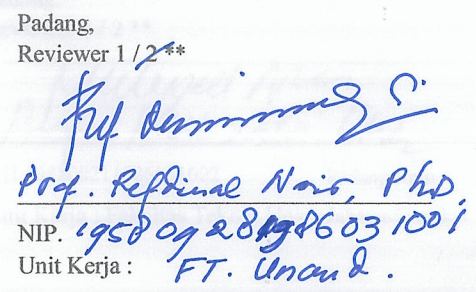 Padang,
Reviewer 1 / 2 **
Prof. Refdinal Nazir, PhD.
NIP. 195809281986031001
Unit Kerja : FT. Unand.